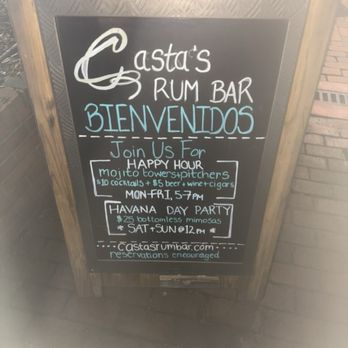 Casta's
RUM BAR
BIENVENIDOS
Join Us For
HAPPY HOUR
mojito towers+pitchers
$10 cocktails + $5 beer + wine + cigars
MON-FRI, 5-7PM
HAVANA DAY PARTY
$25 bottomless mimosas
* SAT+SUN @ 12PM *
castasrumbar.com
reservations encouraged